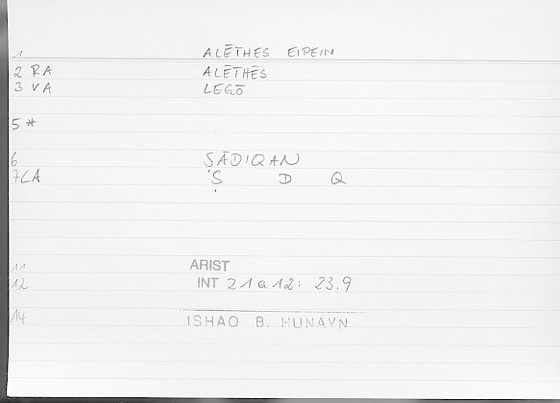 1 ALĒTHES EIPEIN
2 RA ALĒTHĒS
3 VA LEGŌ
5 *
6 ṢĀDIQAN
7 LA Ṣ D Q
11 ARIST
12 INT 21a12: 23.9
14 ISHAQ B. HUNAYN